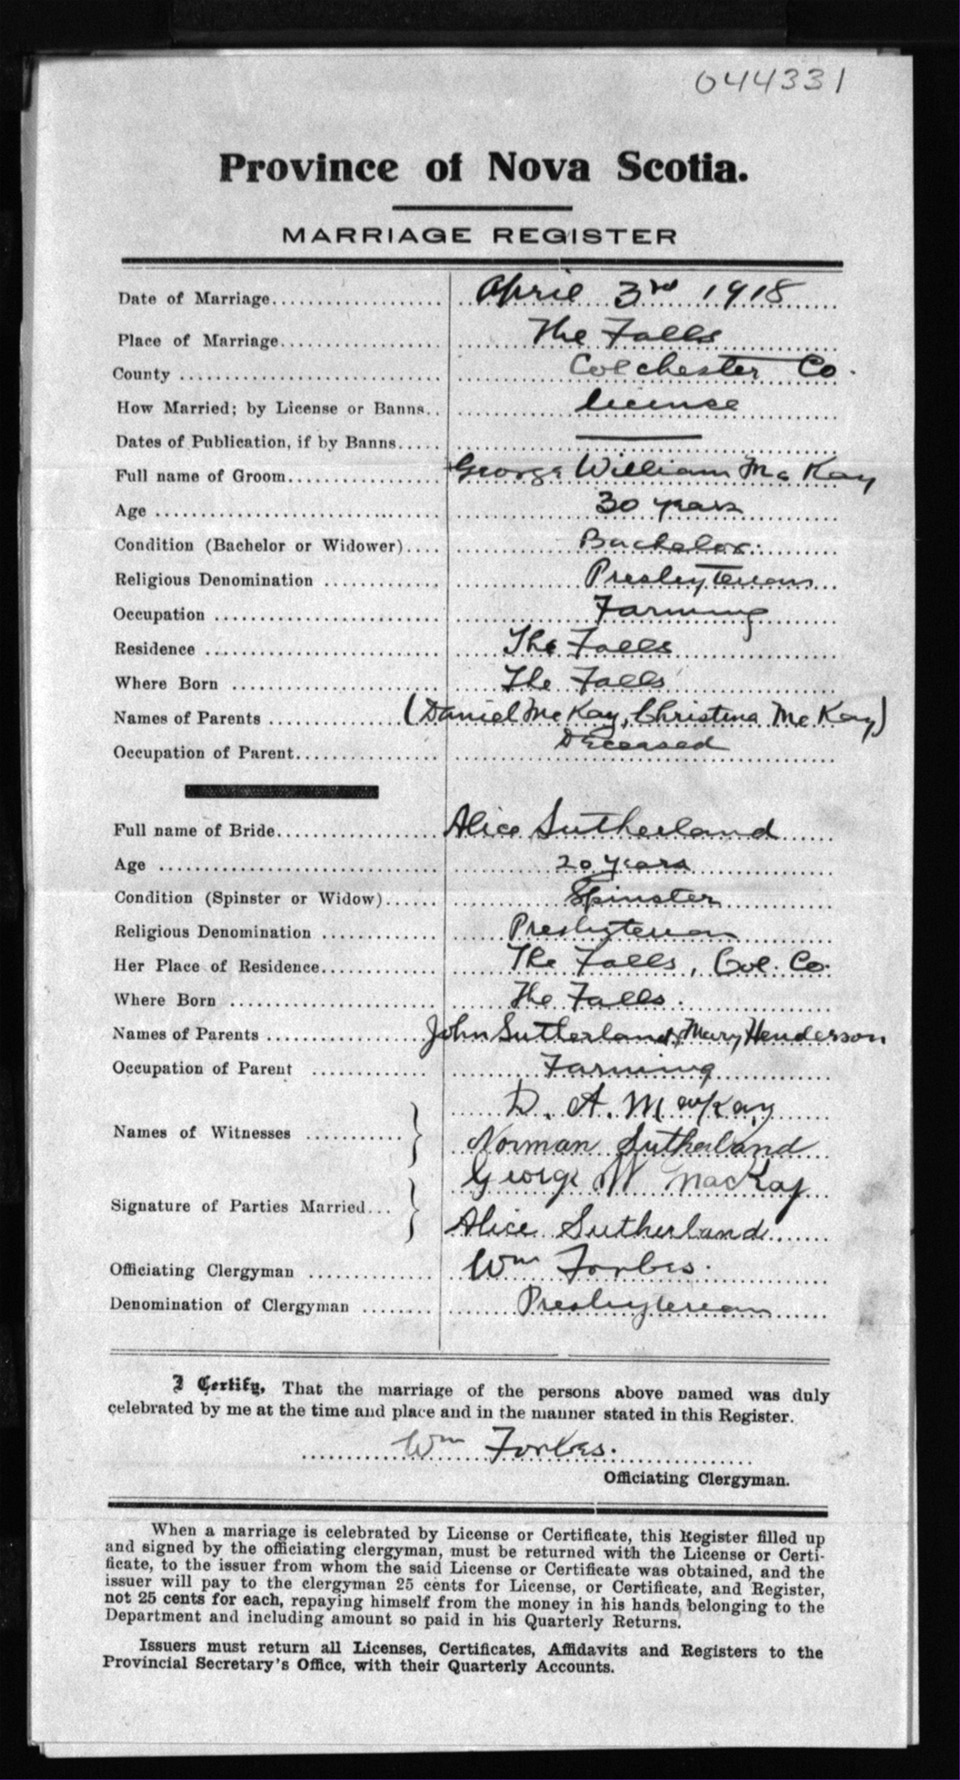 044331
Province of Nova Scotia.
MARRIAGE REGISTER
Date of Marriage.................... April 3rd 1918
Place of Marriage.................... The Falls
County .................... Colchester Co.
How Married; by License or Banns.. license
Dates of Publication, if by Banns..... ———
Full name of Groom.................... George William Mc Kay
Age .................... 30 years
Condition (Bachelor or Widower).... Bachelor.
Religious Denomination ............ Presbyterian
Occupation .................... Farming
Residence .................... The Falls
Where Born .................... The Falls
Names of Parents .............. (Daniel Mc Kay, Christina Mc Kay)
Occupation of Parent.................. Deceased
Full name of Bride.................. Alice Sutherland
Age .................... 20 years
Condition (Spinster or Widow)...... Spinster
Religious Denomination ............ Presbyterian
Her Place of Residence.............. The Falls, Col. Co.
Where Born .................... The Falls.
Names of Parents .................. John Sutherland, Mary Henderson
Occupation of Parent ............ Farming
D. A. MacKay
Names of Witnesses ..........
Norman Sutherland
George W MacKay
Signature of Parties Married...
Alice Sutherland
Officiating Clergyman ............ Wm Forbes.
Denomination of Clergyman ........ Presbyterian
I Certify, That the marriage of the persons above named was duly
celebrated by me at the time and place and in the manner stated in this Register.
Wm Forbes.
Officiating Clergyman.
When a marriage is celebrated by License or Certificate, this Register filled up
and signed by the officiating clergyman, must be returned with the License or Certi-
ficate, to the issuer from whom the said License or Certificate was obtained, and the
issuer will pay to the clergyman 25 cents for License, or Certificate, and Register,
not 25 cents for each, repaying himself from the money in his hands belonging to the
Department and including amount so paid in his Quarterly Returns.
Issuers must return all Licenses, Certificates, Affidavits and Registers to the
Provincial Secretary's Office, with their Quarterly Accounts.